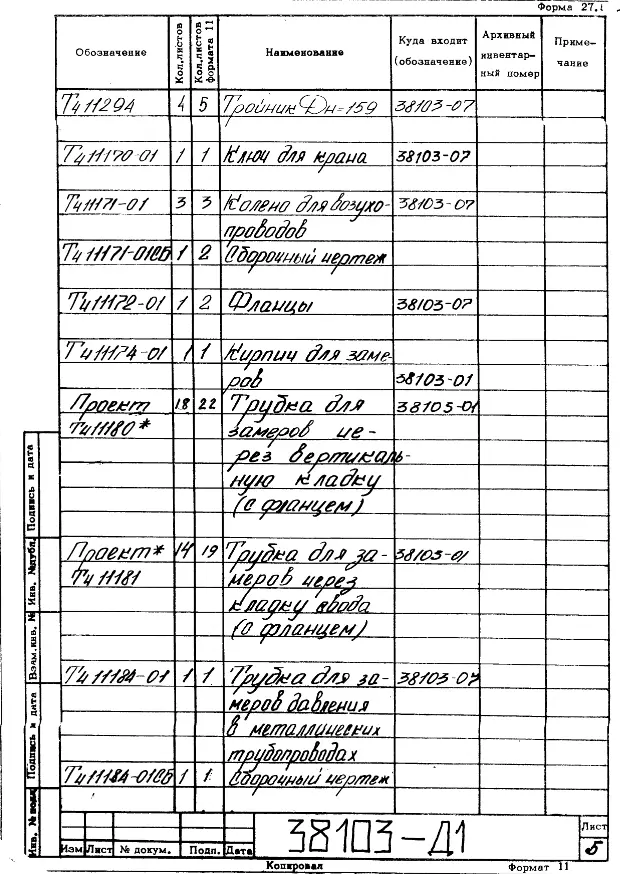 Форма 27.1
Обозначение Кол.листов Кол.листов формата 11 Наименование Куда входит (обозначение) Архивный инвентарный номер Примечание
Тч11129А 4 5 Тройник Дн=159 38103-07
Тч11170-01 1 1 Ключ для крана 38103-07
Тч11171-01 3 3 Колено для возухо- 38103-07
проводов
Тч11171-01СБ 1 2 Сборочный чертеж
Тч11172-01 1 2 Фланцы 38103-07
Тч11174-01 1 1 Кирпич для заме-
ров 38103-01
Проект 18 22 Трубка для 38105-01
Тч11180* замеров че-
рез вертикаль-
ную кладку
(с фланцем)
Проект* 14 19 Трубка для за- 38103-01
Тч11181 меров через
кладку свода
(с фланцем)
Тч11184-01 1 1 Трубка для за- 38103-07
меров давления
в металлических
трубопроводах
Тч11184-01СБ 1 1 Сборочный чертеж
Подпись и дата
Инв. № дубл.
Взам.инв. №
Подпись и дата
Инв. № подл
38103-Д1
Лист
5
Изм Лист № докум. Подп. Дата
Копировал Формат 11